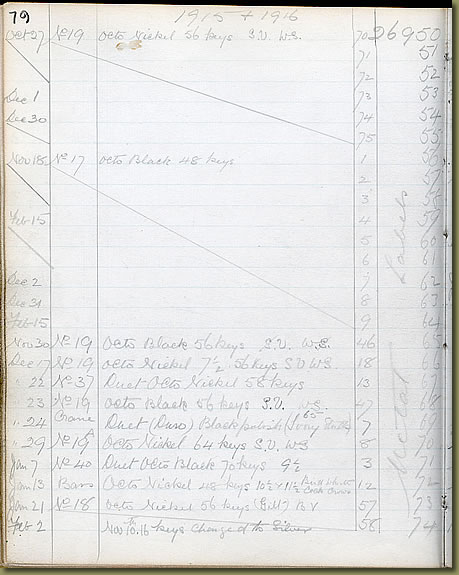 79 1915 + 1916
Oct 27 No 19 Octo Nickel 56 keys S.V. W.S. 70 26950
71 51
72 52
Dec 1 73 53
Dec 30 74 54
75 55
Nov 18 No 17 Octo Black 48 keys 1 56
2 57
3 58
Feb 15 4 59
5 60
6 61
Dec 2 7 62
Dec 31 8 63
Feb 15 9 64
Nov 30 No 19 Octo Black 56 keys S.V. W.S. 46 65
Dec 17 No 19 Octo Nickel 7½ 56 keys S V W.S. 18 66
" 22 No 37 Duet Octo Nickel 58 keys 13 67
" 23 No 19 Octo Black 56 keys S.V. W.S. 47 68
" 24 Crane Duet (Duso) Black polish (Ivory 65 7 69
" 29 No 19A Octo Nickel 64 keys S.V. W.S 8 70
Jan 7 No 40 Duet Octo Black 70 keys 9½ 3 71
Jan 13 Bars Octo Nickel 48 keys 10½ x 11½ 12 72
Jan 21 No 18 Octo Nickel 56 keys (Gilt) B V 57 73
Feb 2 Nov 10th.16 keys changed to Silver 58 74
Metal Labels